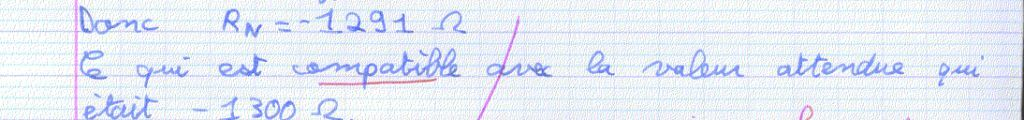 Donc R_N = -1291 Ω
Ce qui est compatible avec la valeur attendue qui
était - 1300 Ω.